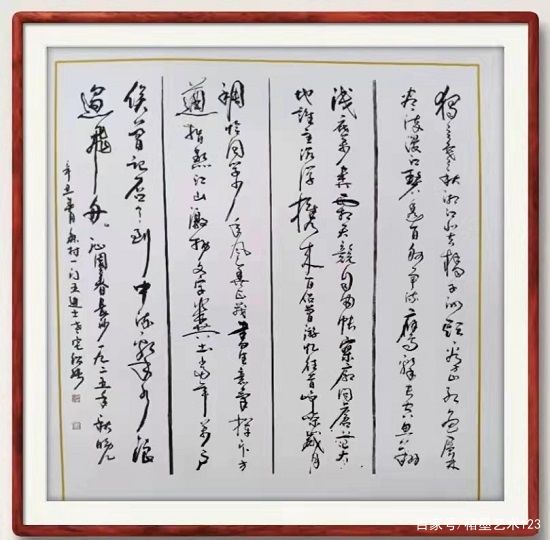 独立寒秋湘江北去橘子洲头看万山红遍层林
尽染漫江碧透百舸争流鹰击长空鱼翔
浅底万类霜天竞自由怅寥廓问苍茫大
地谁主沉浮携来百侣曾游忆往昔峥嵘岁月
稠恰同学少年风华正茂书生意气挥斥方
遒指点江山激扬文字粪土当年万户
侯曾记否到中流击水浪
遏飞舟 沁园春长沙一九二五年秋
辛丑
百家号/ 艺术123